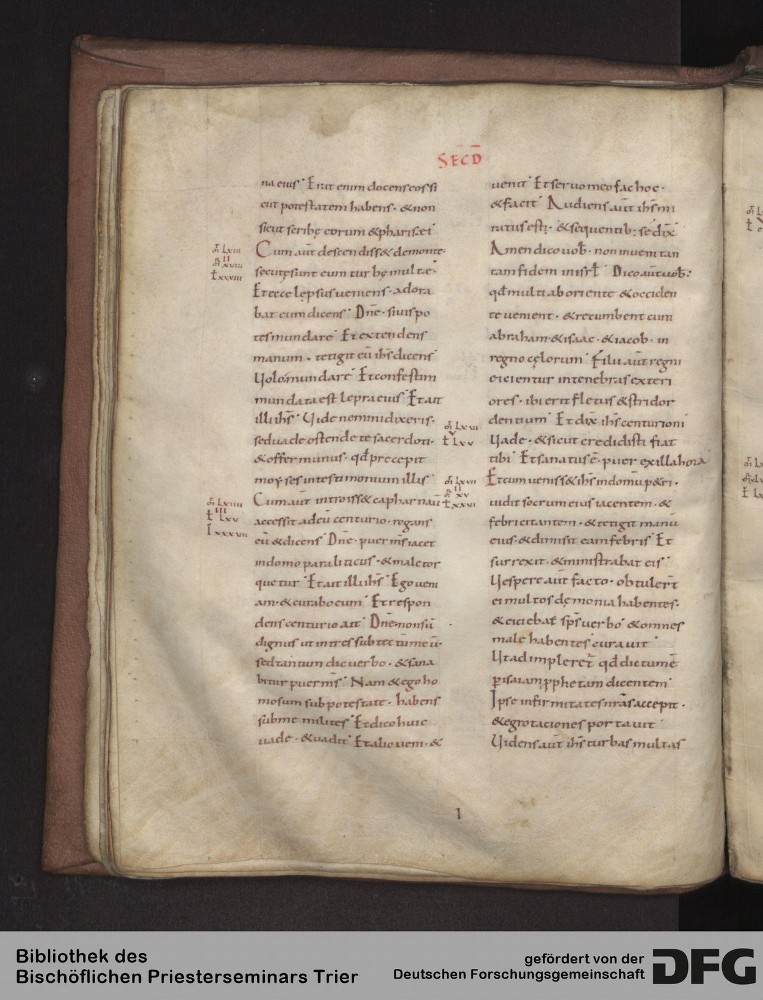 SECD̄
na eius · Erat enim docens eos si
cut potestatem habens · & non
sicut scribę eorum & pharisęi
Cum aūt descendiss& de monte ·
secutę sunt eum turbę multæ ·
Et ecce lepsus veniens · adora
bat eum dicens · Dn̄e · si uis po
tes mundare · Et extendens
manum · tetigit eū ih̄s dicens
Uolo mundare · Et confestim
mundata est lepra eius · Et ait
illi ih̄s · Uide nemini dixeris ·
sed uade ostende te sacerdoti ·
& offer munus · qd̄ precepit
moyses in testimonium illis
Cum aūt introiss& capharnau
accessit ad eū centurio · rogans
eū & dicens · Dn̄e · puer m̄s iacet
in domo paraliticus · & male tor
quetur · Et ait illi ih̄s · Ego veni
am · & curabo eum · Et respon
dens centurio ait · Dn̄e non sū
dignus ut intres sub tectū meū ·
sed tantum dic verbo · & sana
bitur puer m̄s · Nam & ego ho
mo sum sub potestate · habens
sub me milites · Et dico huic
uade · & uadit · Et alio veni · &
venit · Et seruo meo fac hoc ·
& facit · Audiens aūt ih̄s mi
ratus est; · & sequentib; se dix̄
Amen dico uob̄ · non inueni tan
tam fidem in isrl̄ · Dico aūt uob̄ ·
qd̄ multi ab oriente & occiden
te venient · & recumbent cum
abraham · & isaac · & iacob · in
regno cęlorum · Filii aūt regni
eicientur in tenebras exteri
ores · ibi erit fletus & stridor
dentium · Et dix̄ ih̄s centurioni
Uade · & sicut credidisti fiat
tibi · Et sanatus ē · puer ex illa hora
Et cum veniss& ih̄s in domū p&ri ·
uidit socrum eius iacentem · &
febricitantem · & tetigit manū
eius · & dimisit eam febris · Et
surrexit · & ministrabat eis
Uespere aūt facto · obtuler̄t
ei multos dęmonia habentes ·
& eiciebat sps̄ verbo · & omnes
male habentes curauit
Ut adimpleret̄ qd̄ dictum ē
p̄ isaiam pphetam dicentem
Ipse infirmitates nr̄as accepit ·
& egrotationes portauit
Uidens aūt ih̄s turbas multas
I
Bibliothek des
Bischöflichen Priesterseminars Trier
gefördert von der
Deutschen Forschungsgemeinschaft
DFG